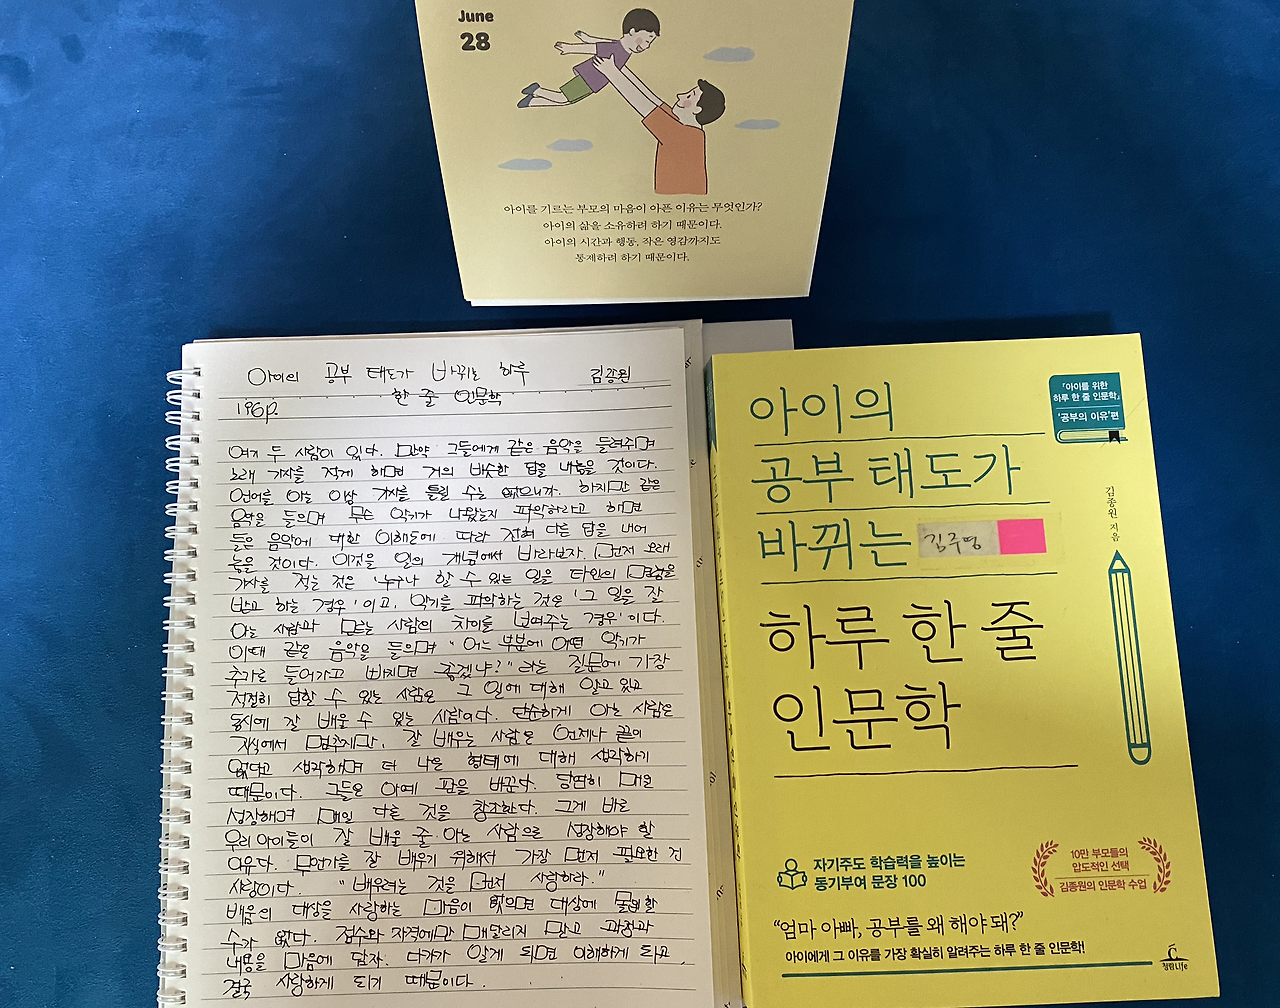 June
28
아이를 기르는 부모의 마음이 아픈 이유는 무엇인가?
아이의 삶을 소유하려 하기 때문이다.
아이의 시간과 행동, 작은 영감까지도
통제하려 하기 때문이다.
아이의 공부 태도가 바뀌는 하루 김종원
한 줄 인문학
196p.
여기 두 사람이 있다. 만약 그들에게 같은 음악을 들려주며
노래 가사를 적게 하면 거의 비슷한 답을 내놓을 것이다.
언어를 아는 이상 가사를 틀릴 수는 없으니까. 하지만 같은
음악을 들으며 무슨 악기가 나왔는지 파악하라고 하면
들은 음악에 대한 이해도에 따라 전혀 다른 답을 내어
놓을 것이다. 이것을 일의 개념에서 바라보자. 먼저 노래
가사를 적는 것은 '누구나 할 수 있는 일을 타인의 명령을
받고 하는 경우'이고, 악기를 파악하는 것은 '그 일을 잘
아는 사람과 모르는 사람의 차이를 보여주는 경우'이다.
이때 같은 음악을 들으며 "어느 부분에 어떤 악기가
추가로 들어가고 빠지면 좋겠냐?"라는 질문에 가장
적절히 답할 수 있는 사람은 그 일에 대해 알고 있고
동시에 잘 배울 수 있는 사람이다. 단순하게 아는 사람은
지식에서 멈추지만, 잘 배우는 사람은 언제나 끝이
없다고 생각하며 더 나은 형태에 대해 생각하기
때문이다. 그들은 아예 판을 바꾼다. 당연히 매일
성장하며 매일 다른 것을 창조한다. 그게 바로
우리 아이들이 잘 배울 줄 아는 사람으로 성장해야 할
이유다. 무언가를 잘 배우기 위해서 가장 먼저 필요한 건
사랑이다. "배우려는 것을 먼저 사랑하라."
배움의 대상을 사랑하는 마음이 없으면 대상에 몰입할
수가 없다. 점수와 자격에만 매달리지 말고 과정과
내용을 마음에 담자. 다가가 알게 되면 이해하게 되고,
결국 사랑하게 되기 때문이다.
아이의
공부 태도가
바뀌는
하루 한 줄
인문학
김주영
『아이를 위한
하루 한 줄 인문학』
'공부의 이유'편
김종원 지음
자기주도 학습력을 높이는
동기부여 문장 100
10만 부모들의
압도적인 선택
김종원의 인문학 수업
"엄마 아빠, 공부를 왜 해야 돼?"
아이에게 그 이유를 가장 확실히 알려주는 하루 한 줄 인문학!
청림Life